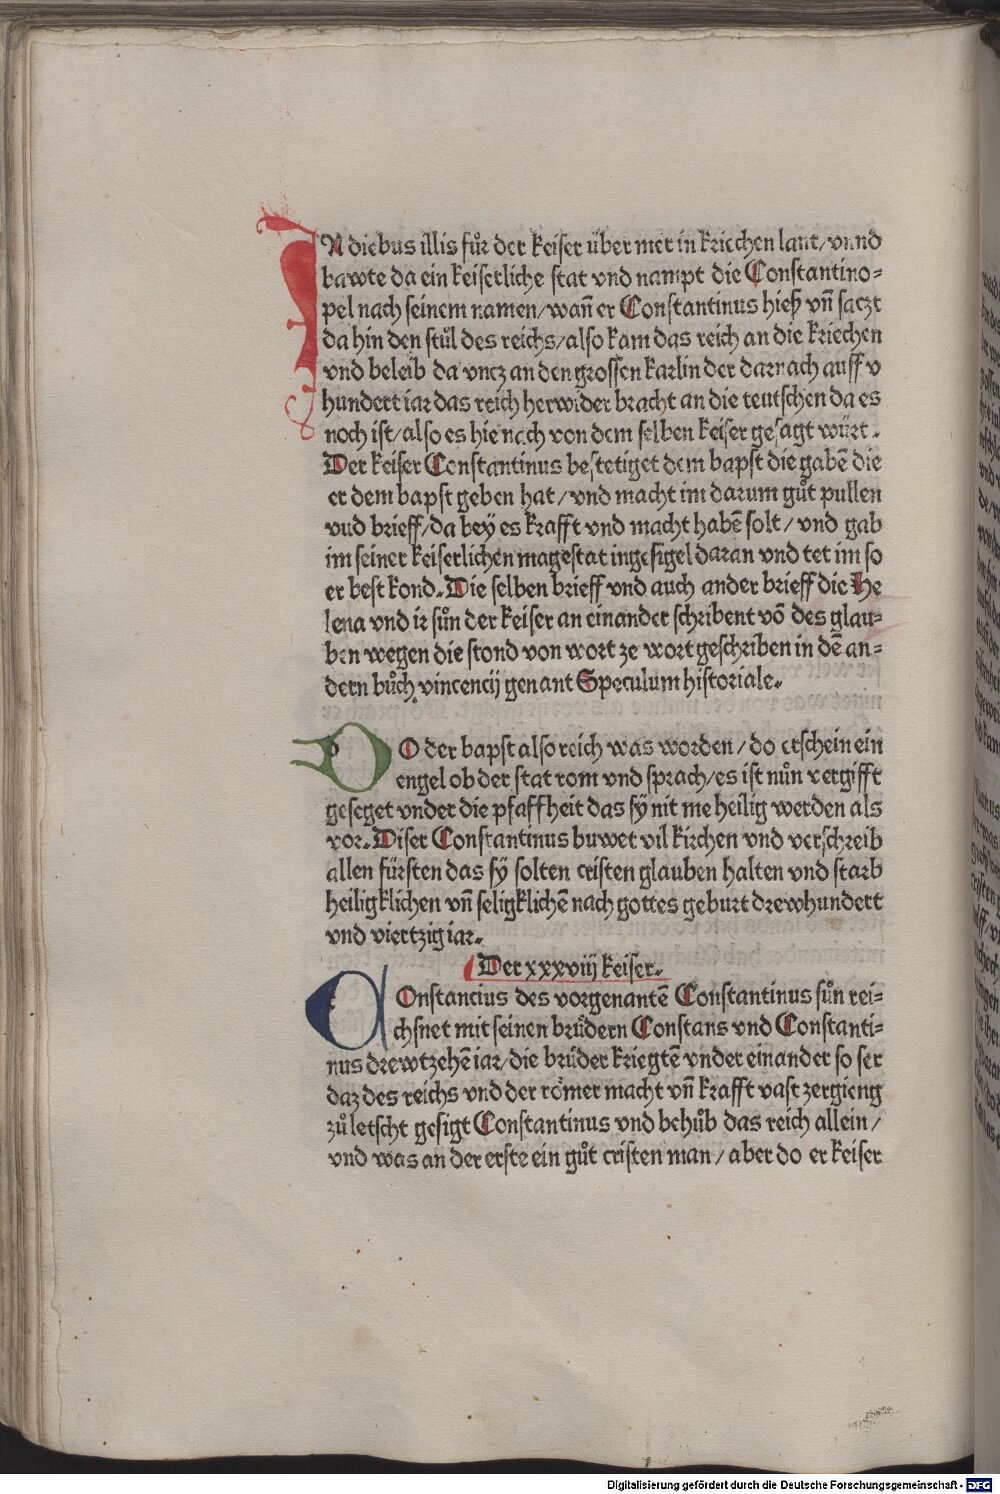 IN diebus illis fůr der keiser über mer in kriechen lant/vnnd
bawte da ein keiserliche stat vnd nampt die Constantino⸗
pel nach seinem namen/wañ er Constantinus hieß vñ saczt
da hin den stůl des reichs/also kam das reich an die kriechen
vnd beleib da vncz an den grossen karlin der darnach auff v
hundert iar das reich herwider bracht an die teutschen da es
noch ist/also es hie nach von dem selben keiser gesagt würt.
Der keiser Constantinus bestetiget dem bapst die gabē die
er dem bapst geben hat/vnd macht im darum gůt pullen
vud brieff/da bey es krafft vnd macht habē solt/vnd gab
im seiner keiserlichen magestat ingesigel daran vnd tet im so
er best kond. Die selben brieff vnd auch ander brieff die He
lena vnd ir sůn der keiser an einander schribent vō des glau⸗
ben wegen die stond von wort ze wort geschriben in dē an⸗
dern bůch vincencij genant Speculum historiale.
DO der bapst also reich was worden/do erschein ein
engel ob der stat rom vnd sprach/es ist nůn vergifft
geseget vnder die pfaffheit das sy nit me heilig werden als
vor. Diser Constantinus buwet vil kirchen vnd verschreib
allen fürsten das sy solten cristen glauben halten vnd starb
heiligklichen vñ seligklichē nach gottes geburt drewhundert
vnd viertzig iar.
Der xxxviij keiser.
COnstancius des vorgenantē Constantinus sůn rei⸗
chsnet mit seinen brüdern Constans vnd Constanti⸗
nus drewtzehē iar/die brüder kriegtē vnder einander so ser
daz des reichs vnd der römer macht vñ krafft vast zergieng
zů letscht gesigt Constantinus vnd behůb das reich allein/
vnd was an der erste ein gůt cristen man/aber do er keiser
Digitalisierung gefördert durch die Deutsche Forschungsgemeinschaft - DFG